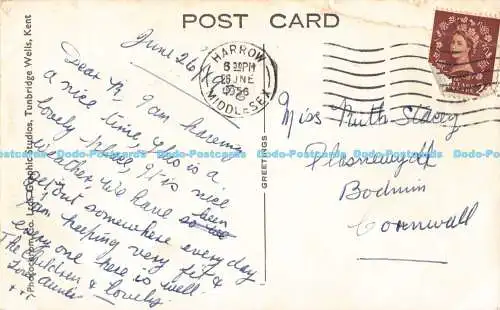 POST CARD
June 26/
HARROW
6 30PM
26 JNE
1956
MIDDLESEX
Dear R, I am having
a nice time, this is a
lovely place, It is nice
weather, We have been
out somewhere every day
I am keeping very fit &
every one here is well.
The Children & lovely.
Love Auntie
+ +
Miss Ruth Stacey
Plasnewydd
Bodmin
Cornwall
GREETINGS
(Photochrom Co. Ltd., Graphic Studios, Tunbridge Wells, Kent
Dodo-Postcards Dodo-Postcards Dodo-Postcards Dodo-Postcards